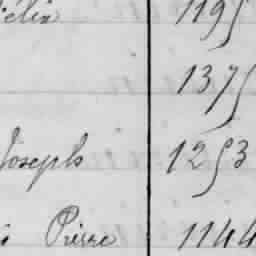 élix 1195
1375
Joseph 1253
Pierre 1144